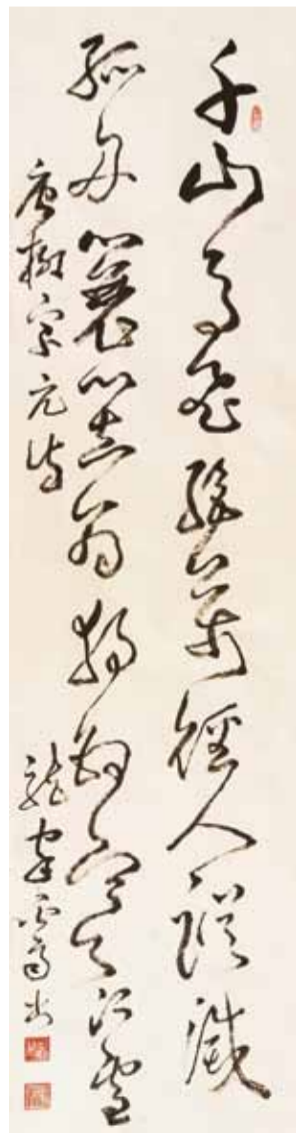 千山鳥飛絕萬徑人蹤滅
孤舟簑笠翁獨釣寒江雪
唐柳宗元詩